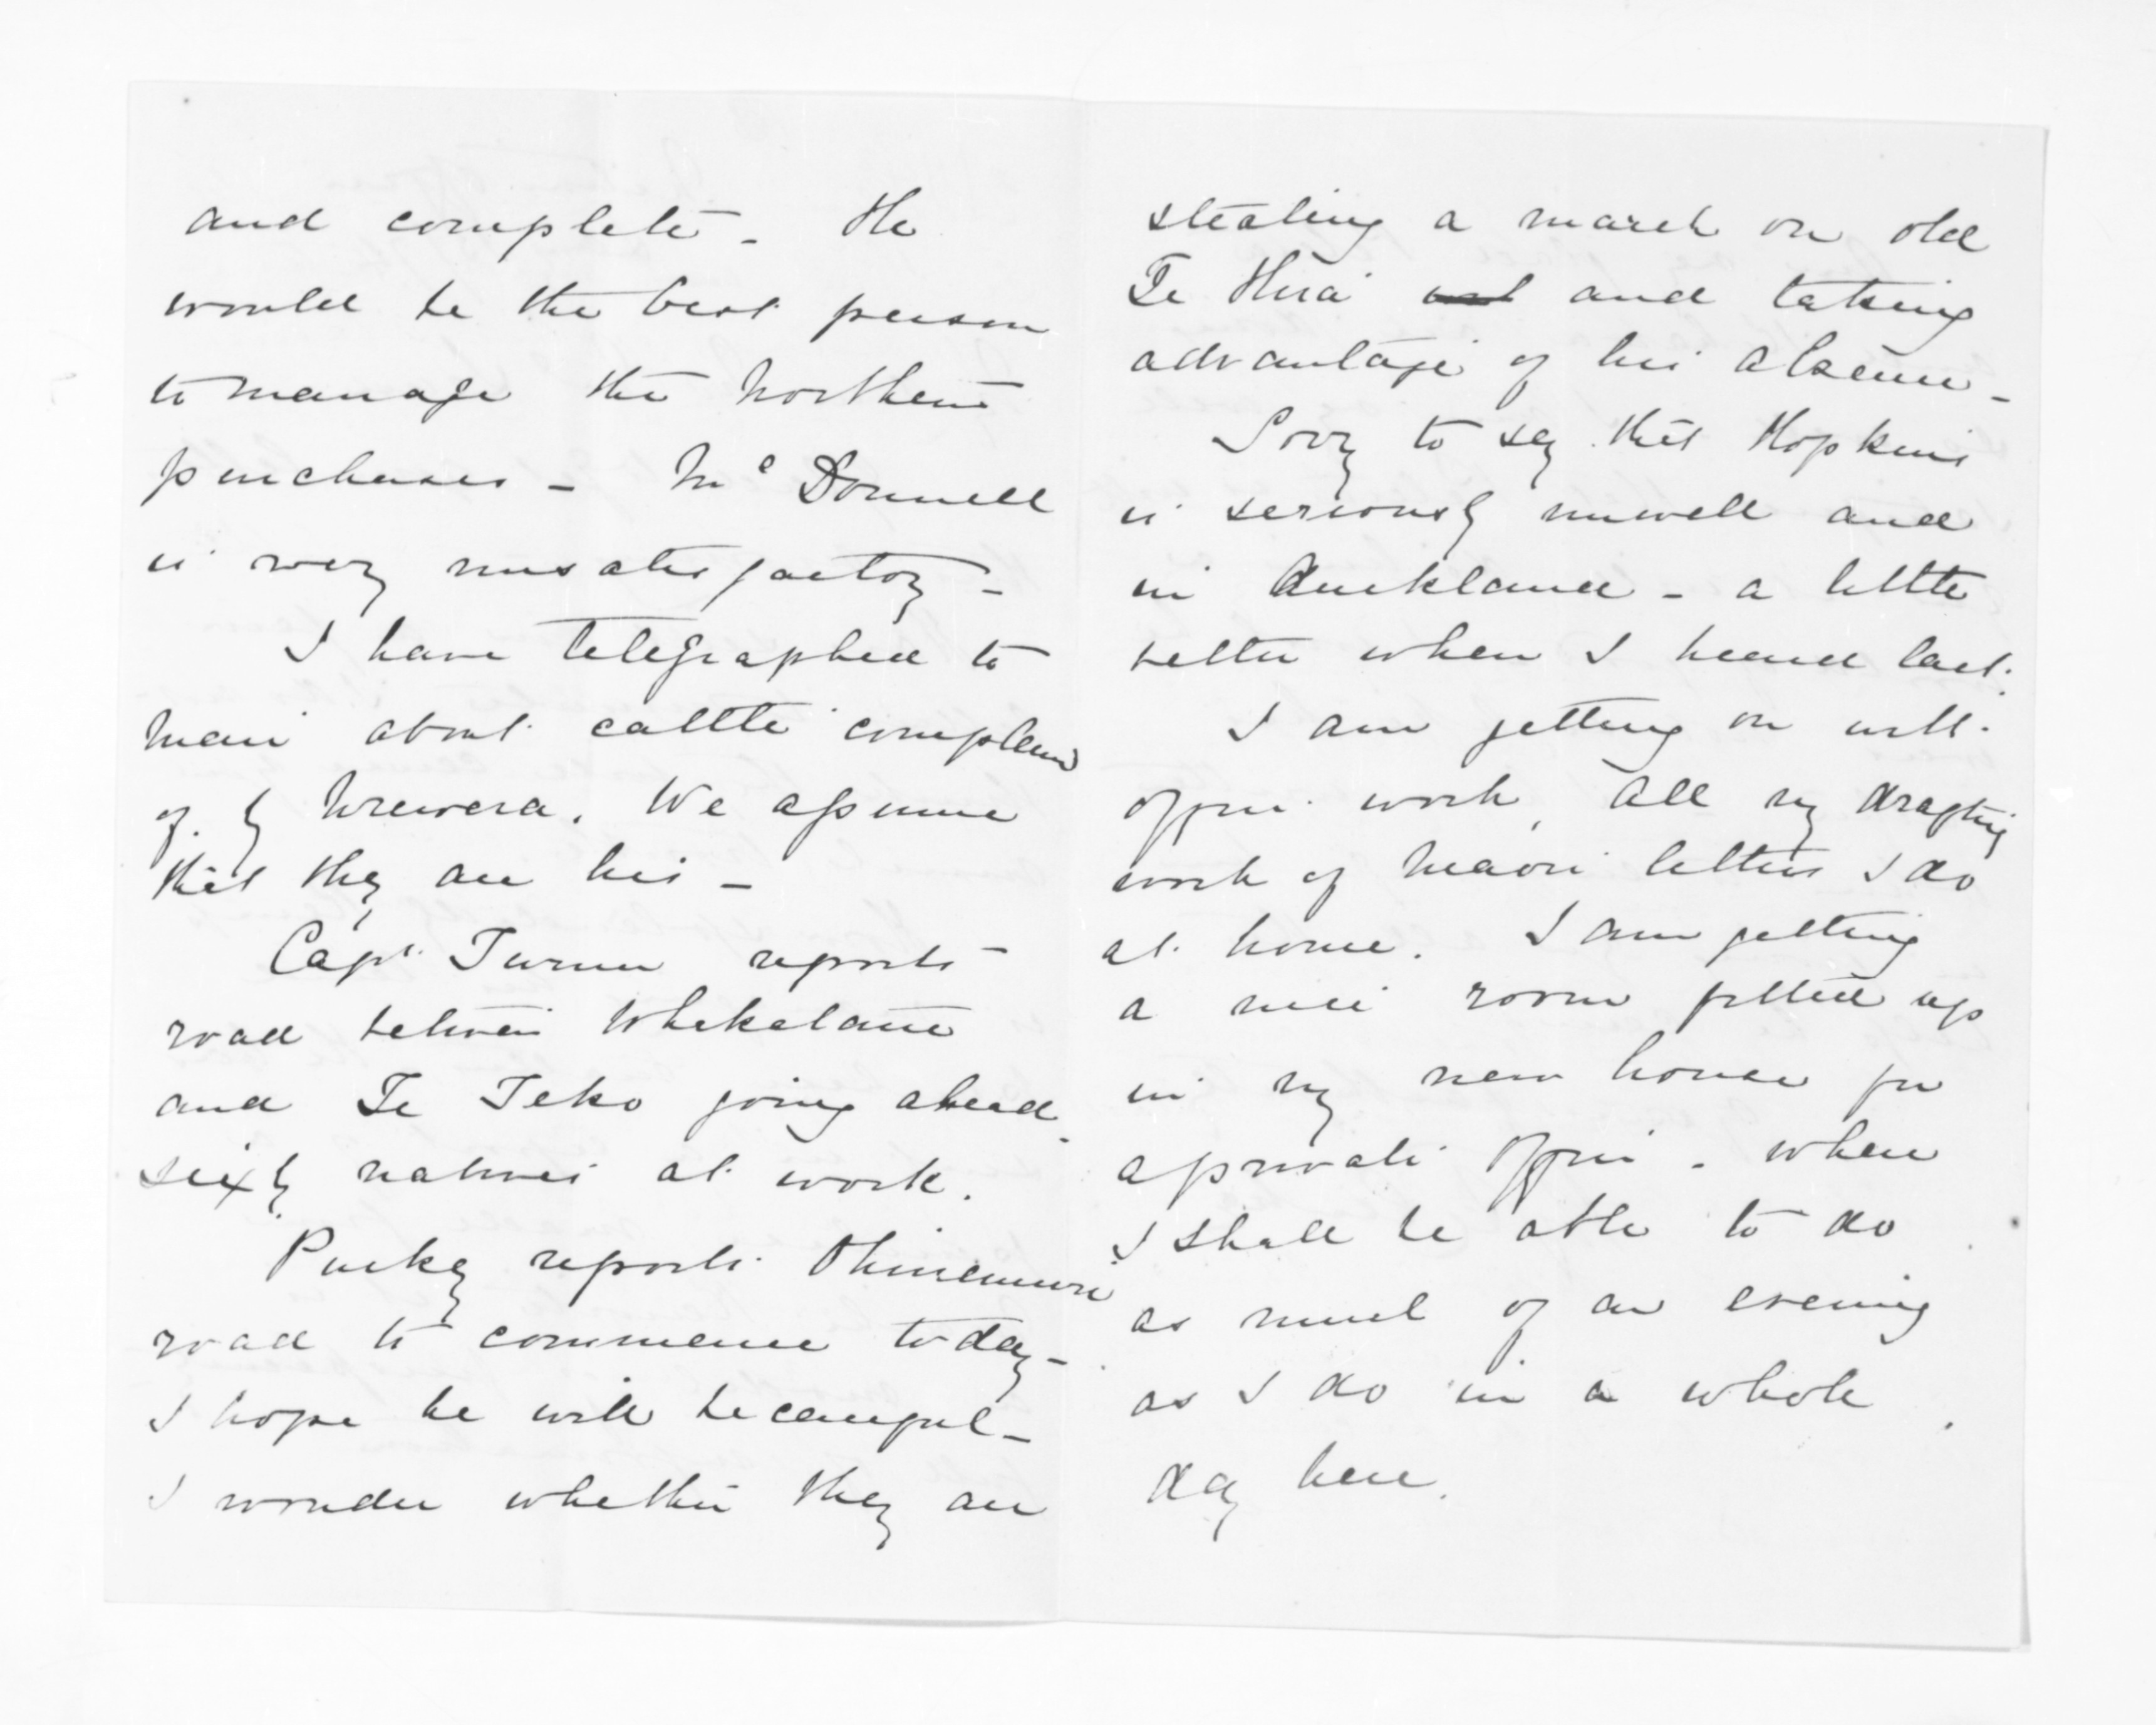 and complete - He
would be the best person
to manage the Northern
purchases - McDonnell
is very unsatisfactory -
I have telegraphed to
Mair about cattle complained
of by Urewera. We assume
that they are his -
Capt. Turner reports -
road between Whakatane
and Te Teko going ahead.
sixty natives at work.
Puckey reports Ohinemuri
road to commence today -
I hope he will be careful -
I wonder whether they are
stealing a march on old
Te Hira and taking
advantage of his absence -
Sorry to say that Hopkins
is seriously unwell and
in Auckland - a little
better when I heard last.
I am getting on with
office work, All my drafting
work of Maori letters I do
at home. I am getting
a nice room fitted up
in my new house for
a private office - where
I shall be able to do
as much of an evening
as I do in a whole
day here.